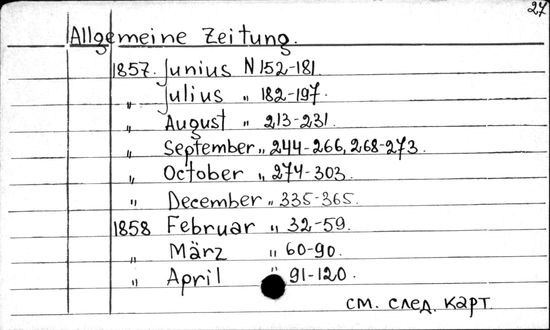 27
Allgemeine Zeitung.
1857. Junius N 152-181.
„ Julius „ 182-197.
„ August „ 213-231.
„ September „ 244-266, 268-273.
„ October „ 274-303.
„ December „ 335-365.
1858 Februar „ 32-59.
„ März „ 60-90.
„ April „ 91-120.
см. след. карт.